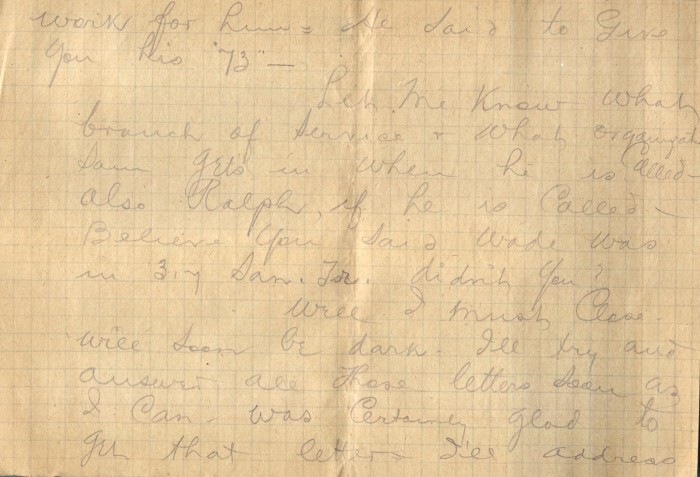 work for him = He said to Give
You his "73" —
Let Me Know What
branch of Service & What organizat
Sam gets in when he is Called —
also Ralph, if he is Called —
Believe You Said Wade was
in 3.7 San. Tr. didn't You?
Well I must Close.
will soon be dark. I'll try and
answer all those letters soon as
I Can. was Certainly glad to
get that letter. I'll address